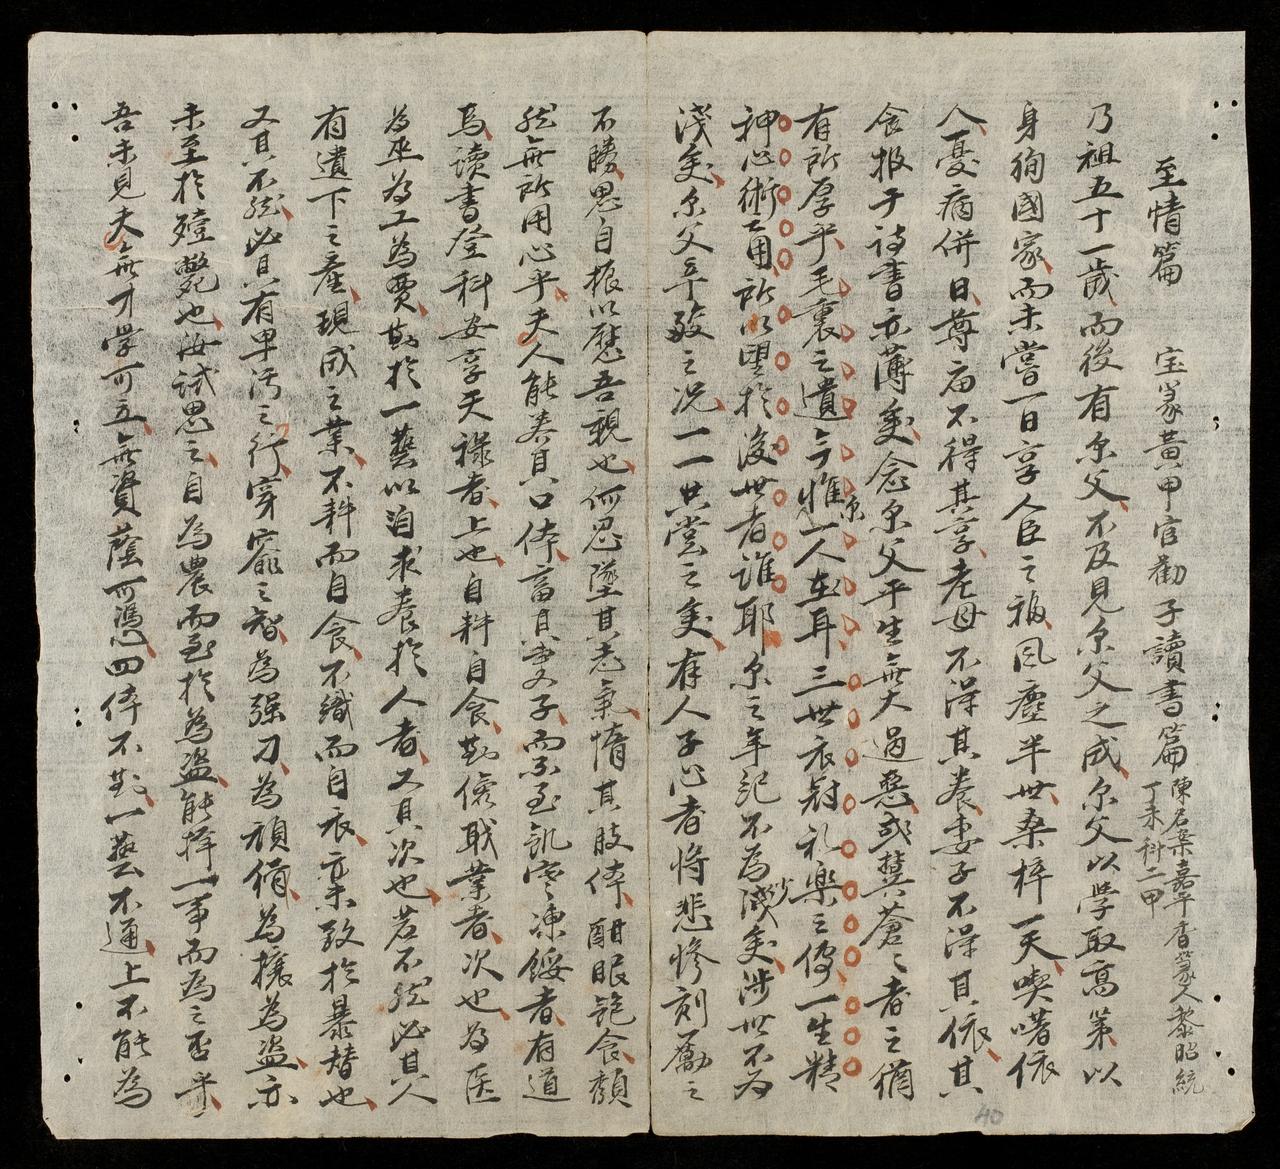 至情篇 宝篆黃甲官勸子讀書篇 陳名案嘉平香篆人黎昭統
丁未科二甲
乃祖五十一歲而後有尔父不及見尔父之成尔父以學取高第以
身殉國家而未嘗一日享人臣之福風塵半世桑梓一天喫啫依
人憂病併日尊庙不得其享老母不得其养妻子不得其依其
食报于詩書亦薄矣念尔父平生無大過惡或與蒼々者之猶
有所厚乎毛裏之遺今惟尔一人在耳三世衣冠礼樂之傳一生精
神心術面所以望於後世者誰耶尔之年記不為少減矣涉世不为
淺矣尔父平敎之况一一共嘗之矣有人子心者将悲慘刻勵之
不勝思自振以慰吾親也何忍墜其志氣惰其肢体酣眠飽食頹
然無所用心乎夫人能养其口体富其妻子而不至飢寒凍餒者有道
焉讀書登科安享天祿者上也自耕自食勤儉职業者次也為医
為巫為工為賈勤於一藝以自求养於人者又其次也若不然必其人
有遺下之產現成之業不耕而自食不織而自衣棄致於暴替也
又其不然必具有卑污之行穿窬之智為强刀為頑偩為攘為盜亦
未至於殪斃也汝試思之自為農而至於為盜能擇一事而為之否乎
吾未見夫無才學可立無資蔭可馮四体不勤一藝不通上不能為
40